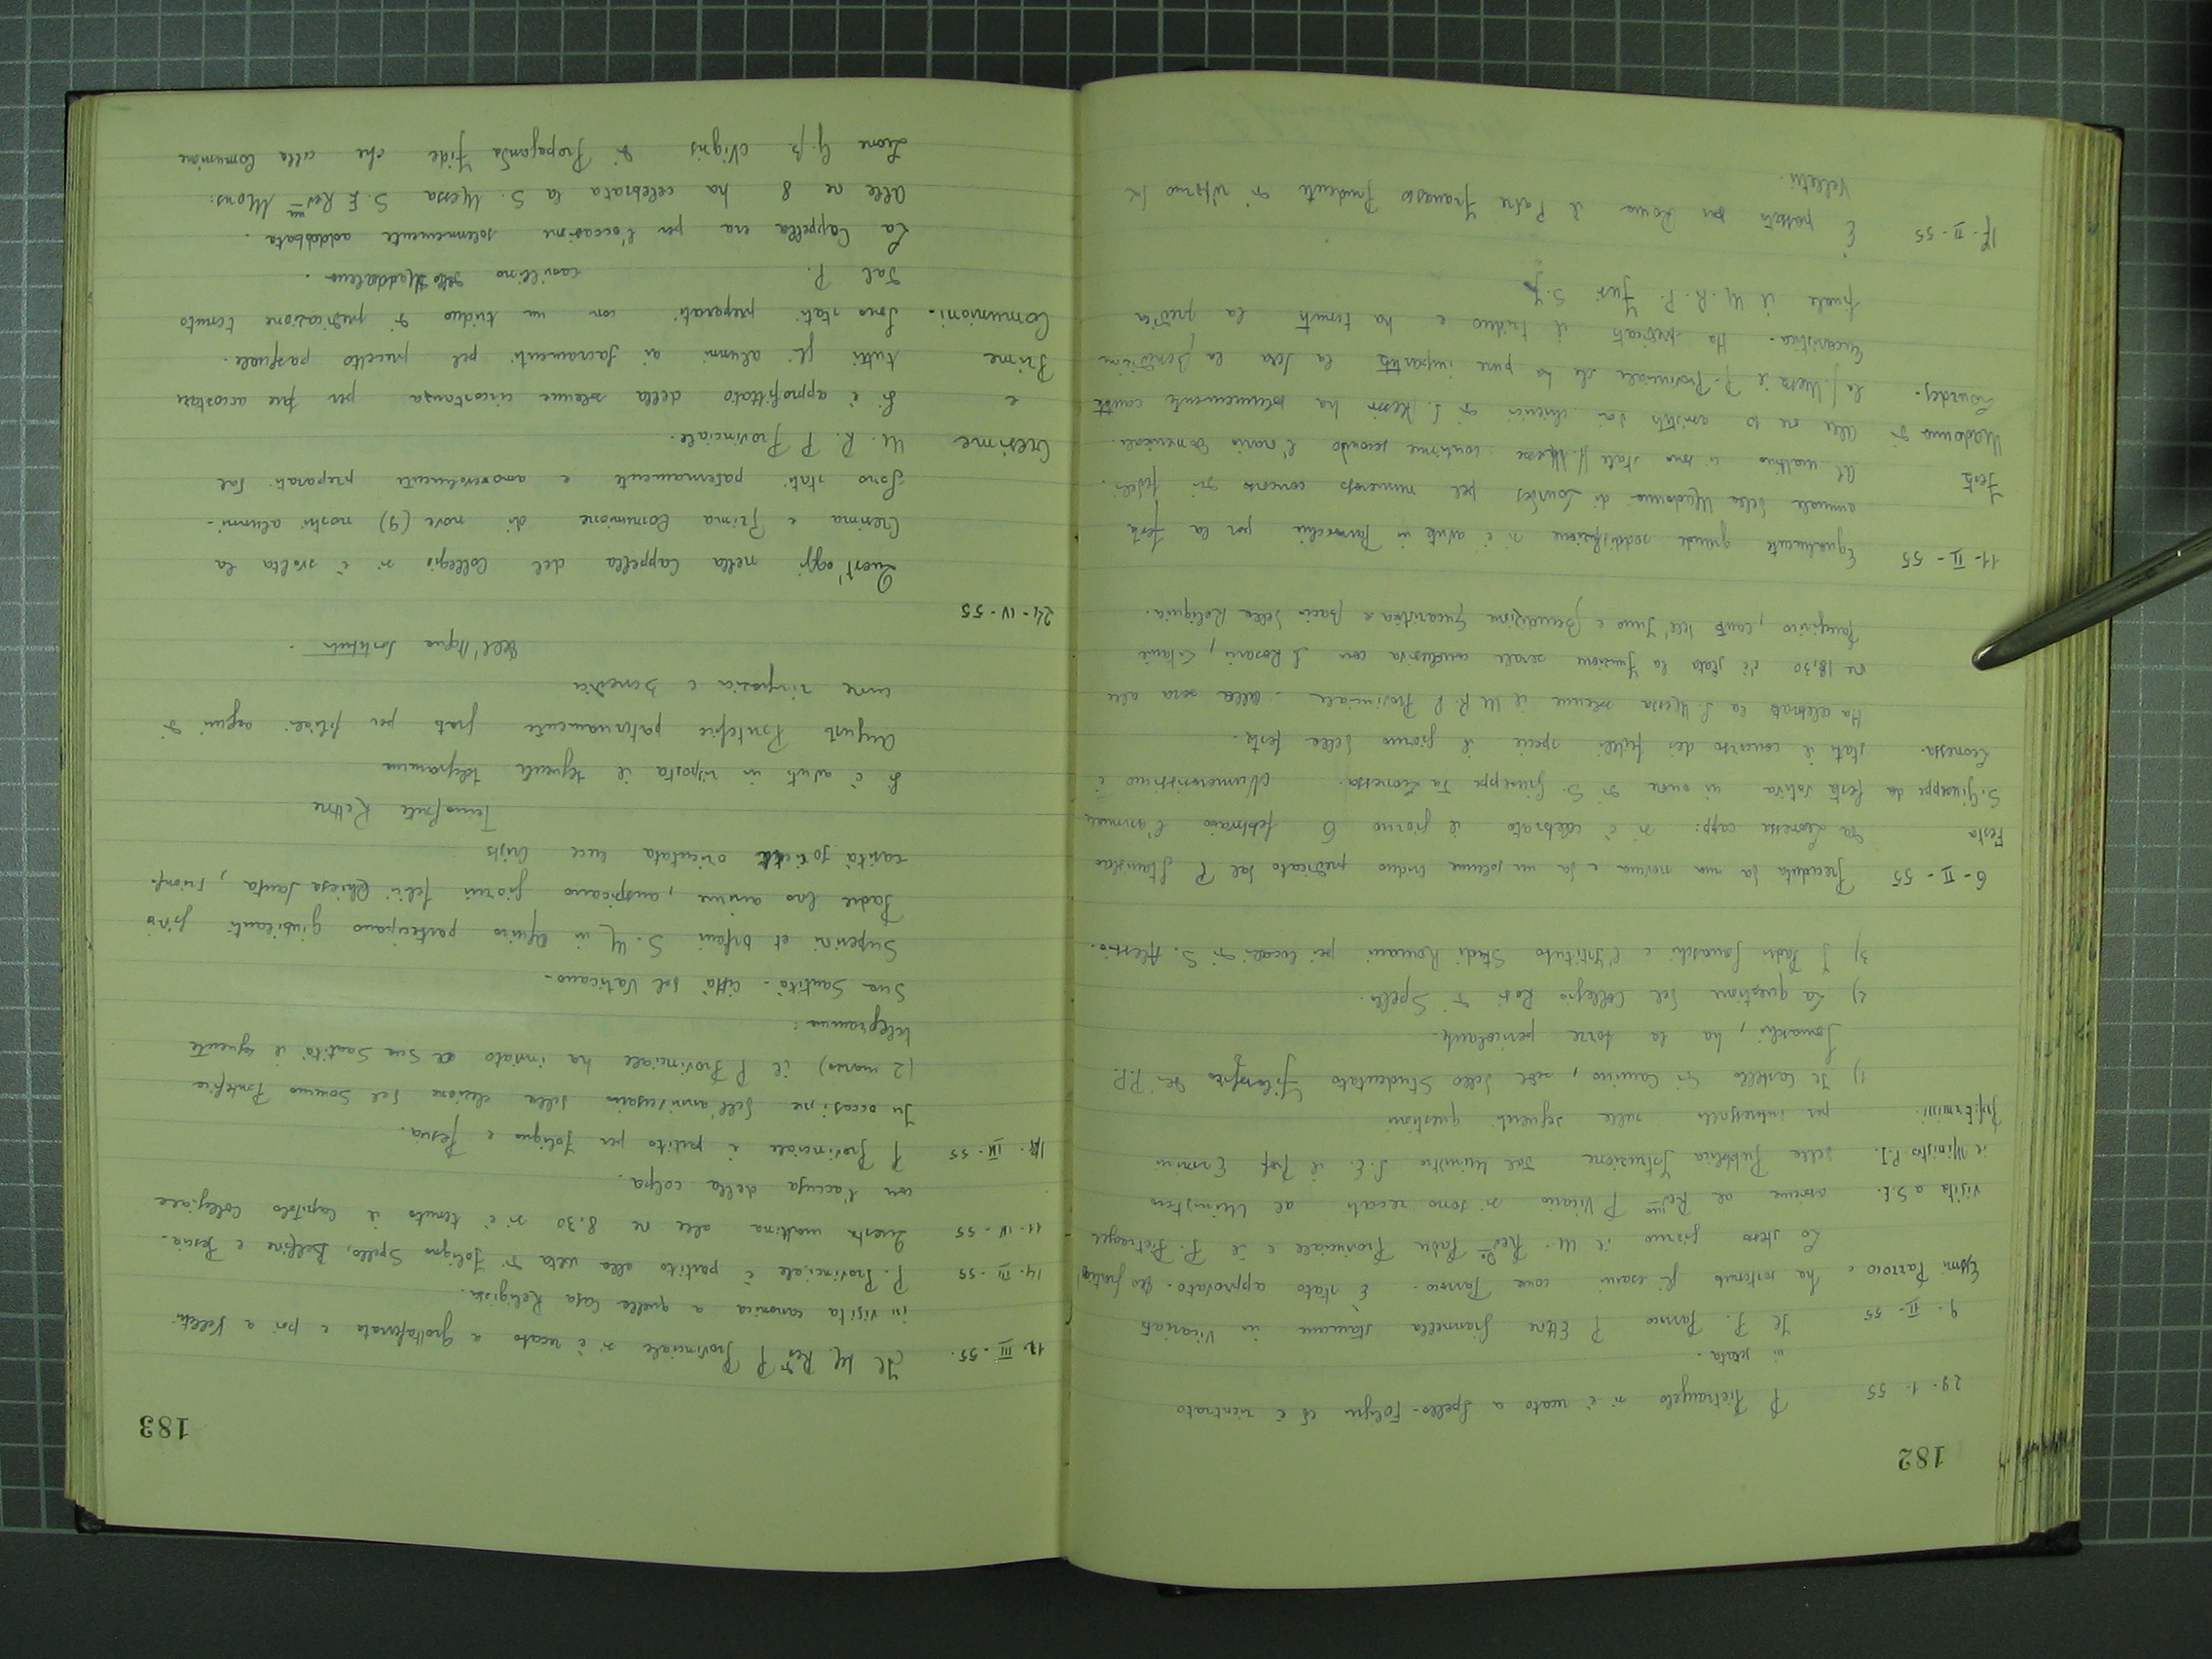 182
29-1-55 P. Pietrangelo si è recato a Spello-Foligno ed è rientrato
in
9-II-55 Il P. Parroco P. Ettore Giannella stamane in Vicariato
Esami Parroco e ha sostenuto gli esami come Parroco. È stato approvato.
Lo stesso giorno il M. Rev. Padre Provinciale e il P. Pietrangelo
visita a S.E. assieme al Rev.mo P. Vicario si sono recati al Ministero
il Ministro P.I. della Pubblica Istruzione dal Ministro S.E. il Prof. Ermini
Prof. Ermini. per interessarlo sulle seguenti questioni
1) Il Castello di Camino, sede dello Studentato Filosofico dei P.P.
Somaschi, ha la torre pericolante.
2) La questione del Collegio Rosi di Spello.
3) I Padri Somaschi e l'Istituto Studi Romani pei locali di S. Alessio.
6-II-55 Preceduta da una novena e da un solenne triduo predicato dal P. Stanislao
Festa da Leonessa capp: si è celebrato il giorno 6 febbraio l'annuale
S. Giuseppe da festa votiva in onore di S. Giuseppe da Leonessa. Numerosissimo è
Leonessa. stato il concorso dei fedeli specie il giorno della festa.
Ha celebrato la S. Messa solenne il M. R. P. Provinciale - alla sera alle
ore 18,30 c'è stata la funzione serale conclusiva con S. Rosario, Litanie
Panegirico, canto dell'Inno e Benedizione Eucaristica e bacio della Reliquia.
11-II-55 Egualmente grande soddisfazione si è avuta in Parrocchia per la festa
annuale della Madonna di Lourdes pel numeroso concorso di fedeli.
Festa Al mattino vi sono state SS. Messe continue secondo l'orario domenicale.
Madonna di alle ore 10 assistito dai chierici di S. Alessio ha solennemente cantato
Lourdes. la S. Messa il P. Provinciale che ha pure impartito la sera la Benedizione
Eucaristica. Ha predicato il triduo e ha tenuto la predica
finale il M. R. P. S.J.
17-II-55 È passato per Roma il Padre Francesco Prudente di ritorno da
Velletri.
183
12-III-55. Il M. Rev. P. Provinciale si è recato a Grottaferrata e poi a Velletri
in visita canonica a quella Casa Religiosa.
14-III-55 P. Provinciale è partito alla volta di Foligno, Spello, Belfiore e Pescia.
11-IV-55 Questa mattina alle ore 8.30 si è tenuto il Capitolo Collegiale
con l'accusa della colpa.
P. Provinciale è partito per Foligno e Pescia.
In occasione dell'anniversario della elezione del Sommo Pontefice
(2 marzo) il P. Provinciale ha inviato a Sua Santità il seguente
telegramma:
Sua Santità - Città del Vaticano-
Superiori et orfani S. M. in Aquiro partecipano giubilanti gioia
Padre loro anime, auspicano giorni felici Chiesa Santa, trionfi
carità società orientata luce Cristo
Tenofonte Rettore
Si è avuto in risposta il seguente telegramma
Augusto Pontefice paternamente grato per filiali auguri di
cuore ringrazia e benedice
Dell'Acqua Sostituto.
24-IV-55
Quest'oggi nella Cappella del Collegio si è svolta la
Cresima e Prima Comunione di nove (9) nostri alunni-
Sono stati paternamente e amorevolmente preparati dal
Cresime M. R. P. Provinciale.
e Si è approfittato della solenne circostanza per far accostare
Prime tutti gli alunni ai Sacramenti pel precetto pasquale.
Comunioni. Sono stati preparati con un triduo di predicazione tenuto
dal P. camillino Maddalena.
La Cappella era per l'occasione solennemente addobbata.
Alle ore 8 ha celebrata la S. Messa S. E. Rev.ma Mons:
Leone G.B. Nigris di Propaganda Fide che alla Comunione